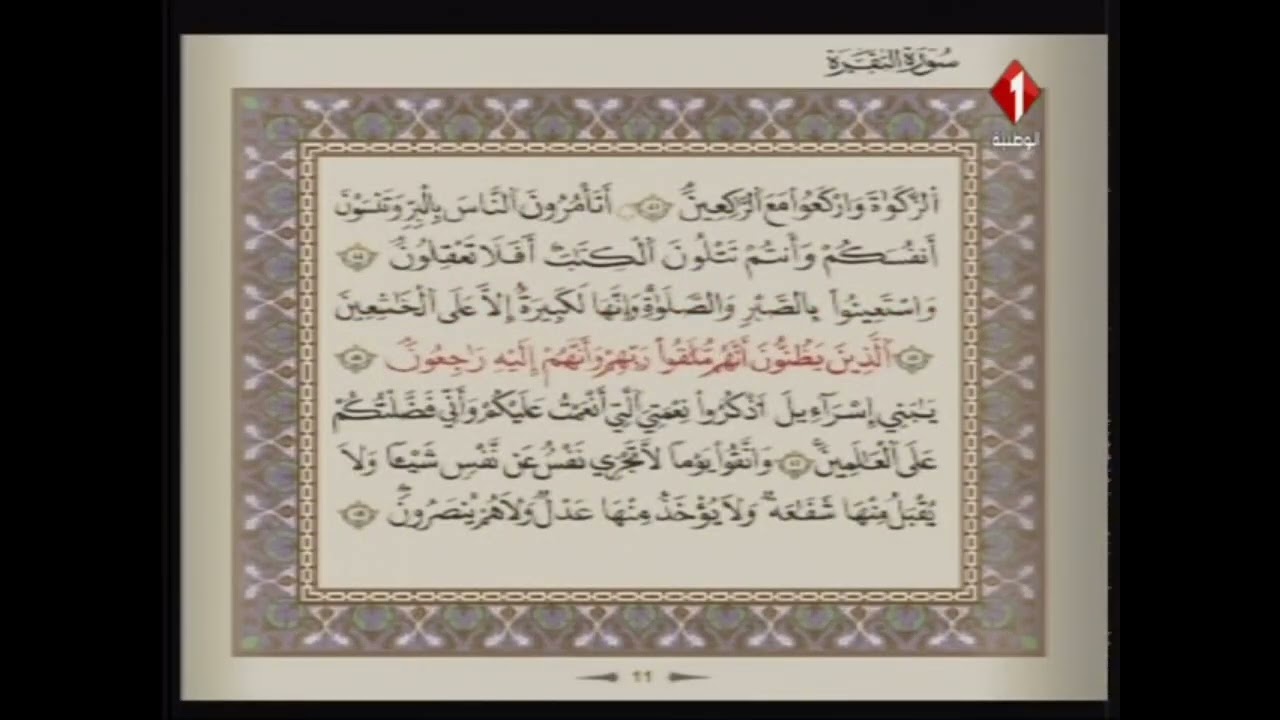 سورة البقرة
1
الوطنية
اَلزَّكَوٰةَ وَارْكَعُواْ مَعَ اَلرَّٰكِعِينَ أَتَأْمُرُونَ اَلنَّاسَ بِالْبِرِّ وَتَنسَوْنَ
أَنفُسَكُمْ وَأَنتُمْ تَتْلُونَ اَلْكِتَٰبَ أَفَلَا تَعْقِلُونَ
وَاسْتَعِينُواْ بِالصَّبْرِ وَالصَّلَوٰةِ وَإِنَّهَا لَكَبِيرَةٌ إِلَّا عَلَى اَلْخَٰشِعِينَ
اَلَّذِينَ يَظُنُّونَ أَنَّهُم مُّلَٰقُواْ رَبِّهِمْ وَأَنَّهُمْ إِلَيْهِ رَٰجِعُونَ
يَٰبَنِي إِسْرَآءِيلَ اَذْكُرُواْ نِعْمَتِيَ اَلَّتِي أَنْعَمْتُ عَلَيْكُمْ وَأَنِّي فَضَّلْتُكُمْ
عَلَى اَلْعَٰلَمِينَ وَاتَّقُواْ يَوْماً لَّا تَجْزِي نَفْسٌ عَن نَّفْسٍ شَيْـٔاً وَلَا
يُقْبَلُ مِنْهَا شَفَٰعَةٌ وَلَا يُؤْخَذُ مِنْهَا عَدْلٌ وَلَا هُمْ يُنصَرُونَ
11